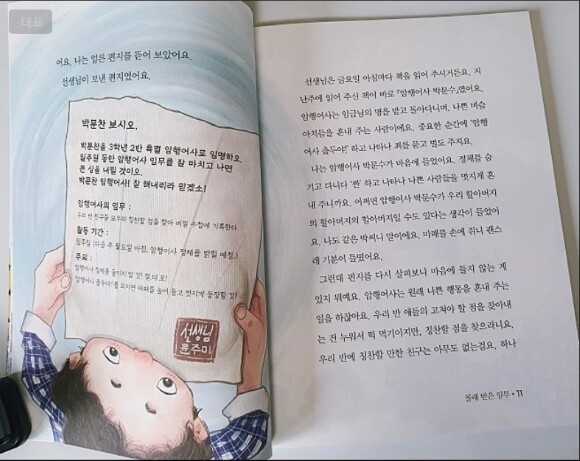 대표
어요. 나는 얼른 편지를 뜯어 보았어요.
선생님이 보낸 편지였어요.
박문찬 보시오.
박문찬을 3학년 2반 특별 암행어사로 임명하오.
일주일 동안 암행어사 임무를 잘 마치고 나면
큰 상을 내릴 것이오.
박문찬 암행어사! 잘 해내리라 믿겠소!
암행어사의 임무 :
우리 반 친구들 모두의 칭찬할 점을 찾아 비밀 수첩에 기록한다.
활동 기간 :
일주일 (다음 주 월요일 아침, 암행어사 정체를 밝힐 예정.)
주의 :
암행어사 정체를 들키지 말 것! 절대로!
'암행어사 출두야!'를 외치면 마패를 높이 들고 멋지게 등장할 것!
선생님
윤주미
선생님은 금요일 아침마다 책을 읽어 주시거든요. 지
난주에 읽어 주신 책이 바로 『암행어사 박문수』였어요.
암행어사는 임금님의 명을 받고 돌아다니며, 나쁜 벼슬
아치들을 혼내 주는 사람이에요. 중요한 순간에 '암행
어사 출두야!' 하고 나타나 죄를 묻고 벌도 주지요.
나는 암행어사 박문수가 마음에 들었어요. 정체를 숨
기고 다니다 '짠' 하고 나타나 나쁜 사람들을 멋지게 혼
내 주니까요. 어쩌면 암행어사 박문수가 우리 할아버지
의 할아버지의 할아버지일 수도 있다는 생각이 들었어
요. 나도 같은 박씨니 말이에요. 마패를 손에 쥐니 괜스
레 기분이 들떴어요.
그런데 편지를 다시 살펴보니 마음에 들지 않는 게
있지 뭐예요. 암행어사는 원래 나쁜 행동을 혼내 주는
일을 하잖아요. 우리 반 애들의 고쳐야 할 점을 찾아내
는 건 누워서 떡 먹기이지만, 칭찬할 점을 찾으라니요.
우리 반에 칭찬할 만한 친구는 아무도 없는걸요. 하나
몰래 받은 임무 • 11